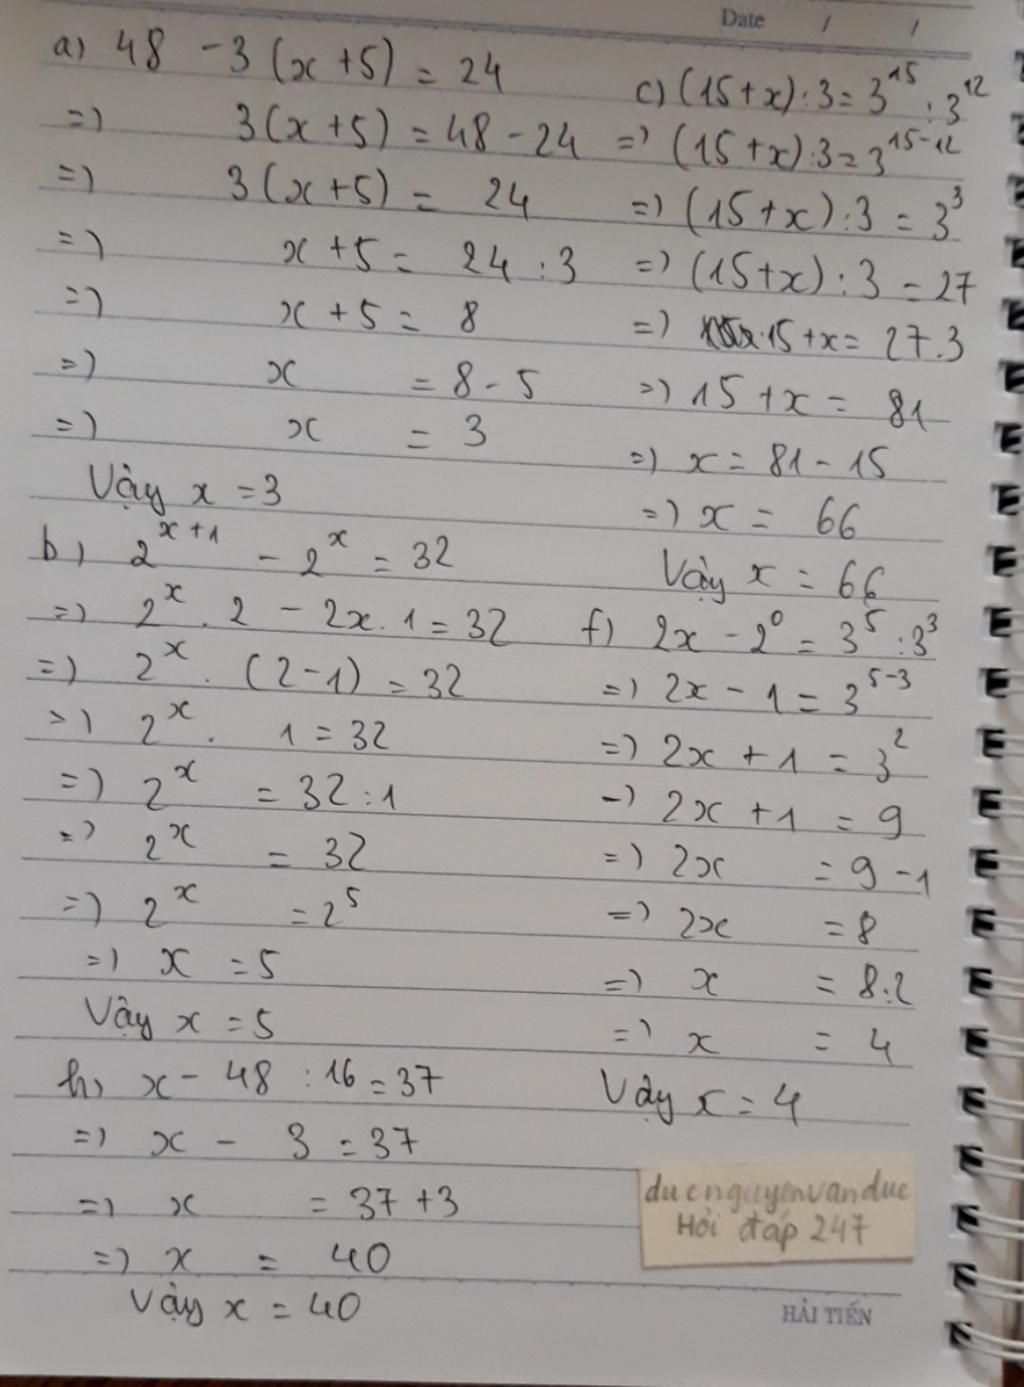 Date / /
a) 48 - 3 (x + 5) = 24
=) 3 (x + 5) = 48 - 24
=) 3 (x + 5) = 24
=) x + 5 = 24 : 3
=) x + 5 = 8
=) x = 8 - 5
=) x = 3
Vậy x = 3
b) 2^{x+1} - 2^x = 32
=) 2^x . 2 - 2x . 1 = 32
=) 2^x . (2 - 1) = 32
=) 2^x . 1 = 32
=) 2^x = 32 : 1
=) 2^x = 32
=) 2^x = 2^5
=) x = 5
Vậy x = 5
h) x - 48 : 16 = 37
=) x - 3 = 37
=) x = 37 + 3
=) x = 40
Vậy x = 40
c) (15 + x) : 3 = 3^{15} : 3^{12}
=) (15 + x) : 3 = 3^{15-12}
=) (15 + x) : 3 = 3^3
=) (15 + x) : 3 = 27
=) 15 + x = 27 . 3
=) 15 + x = 81
=) x = 81 - 15
=) x = 66
Vậy x = 66
f) 2x - 2^0 = 3^5 : 3^3
=) 2x - 1 = 3^{5-3}
=) 2x + 1 = 3^2
-) 2x + 1 = 9
=) 2x = 9 - 1
=) 2x = 8
=) x = 8 : 2
=) x = 4
Vậy x = 4
ducnguyenvanduc
Hỏi đáp 247
HẢI TIẾN